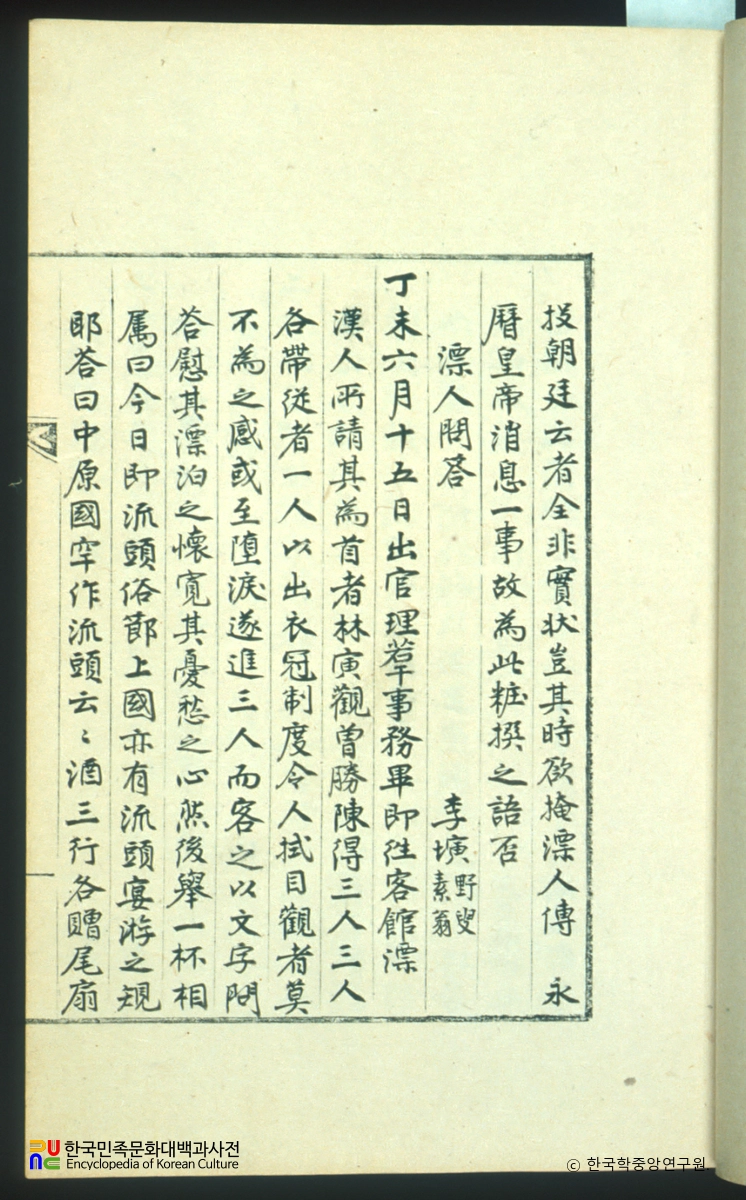 投朝廷云者全非實狀豈其時欲掩漂人傳　永
曆皇帝消息一事故為此粧撰之語否
漂人問答　李壙野叟素翁
丁未六月十五日出官理若干事務畢即徃客館漂
漢人所請其為首者林寅觀曽勝陳得三人三人
各帶從者一人以出衣冠制度令人拭目觀者莫
不為之感或至墮淚遂進三人而客之以文字問
答慰其漂泊之懷寛其憂愁之心然後舉一杯相
属曰今日即流頭俗節上國亦有流頭宴游之規
耶答曰中原國罕作流頭云〻酒三行各贈尾扇
한국민족문화대백과사전
Encyclopedia of Korean Culture
© 한국학중앙연구원